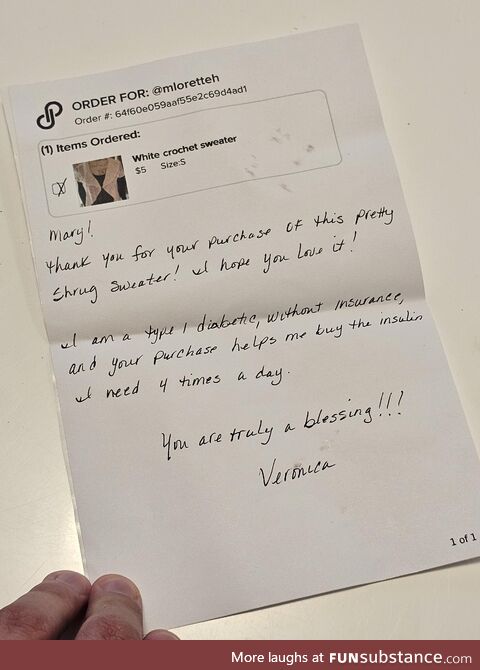 ORDER FOR: @mloretteh
Order #: 64f60e059aaf55e2c69d4ad1
(1) Items Ordered:
White crochet sweater
$5 Size:S
Mary!
Thank you for your purchase of this pretty
Shrug Sweater! I hope you love it!
I am a type 1 diabetic, without insurance,
and your purchase helps me buy the insulin
I need 4 times a day.
You are truly a blessing!!!
Veronica
1 of 1
More laughs at FUNsubstance.com